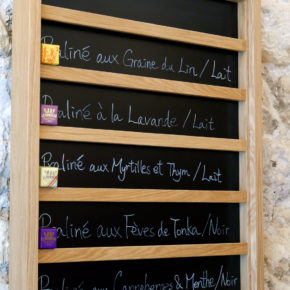 Praliné aux Graine du Lin / Lait
Praliné à la Lavande / Lait
Praliné aux Myrtilles et Thym / Lait
Praliné aux Fèves de Tonka / Noir
Praliné aux Canneberges & Menthe / Noir